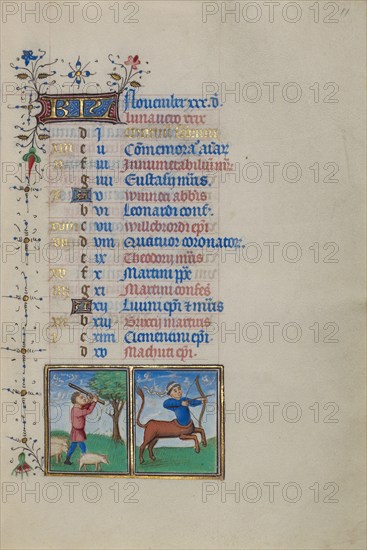 11
KL November xxx. d.
Luna vero xxix
d
xiii e ii Comemora. aiar
f iii Innumerabilium mr.
g iiii Eustasij mris
A v abbis
b vi Leonardi conf.
c vii Willebrordi epi
d viii Quatuor coronator.
e ix Theodori mris
f x Martini ppe
g xi Martini confes
A xii Liuini epi & mris
b xiii Briccij martiris
c xiiii Clementini epi.
d xv Machuti epi.
PHOTO12